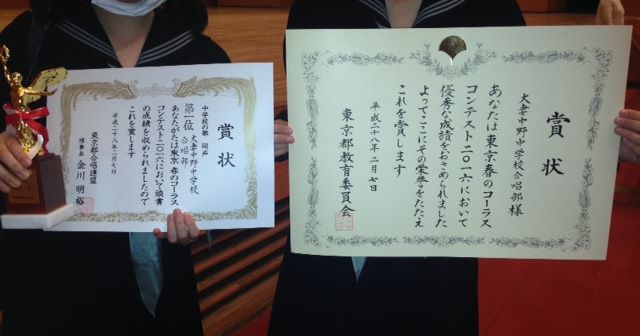 賞状
中学校の部 同声
第一位 大妻中野中学校
合唱部
あなたがたは東京 春のコーラス
コンテスト二〇一六において頭書
の成績を収められましたので
これを賞します
平成二十八年二月七日
東京都合唱連盟
理事長 金川明裕
賞状
大妻中野中学校合唱部様
あなたは東京春のコーラス
コンテスト二〇一六において
優秀な成績をおさめられました
よってここにその栄誉をたたえ
これを賞します
平成二十八年二月七日
東京都教育委員会